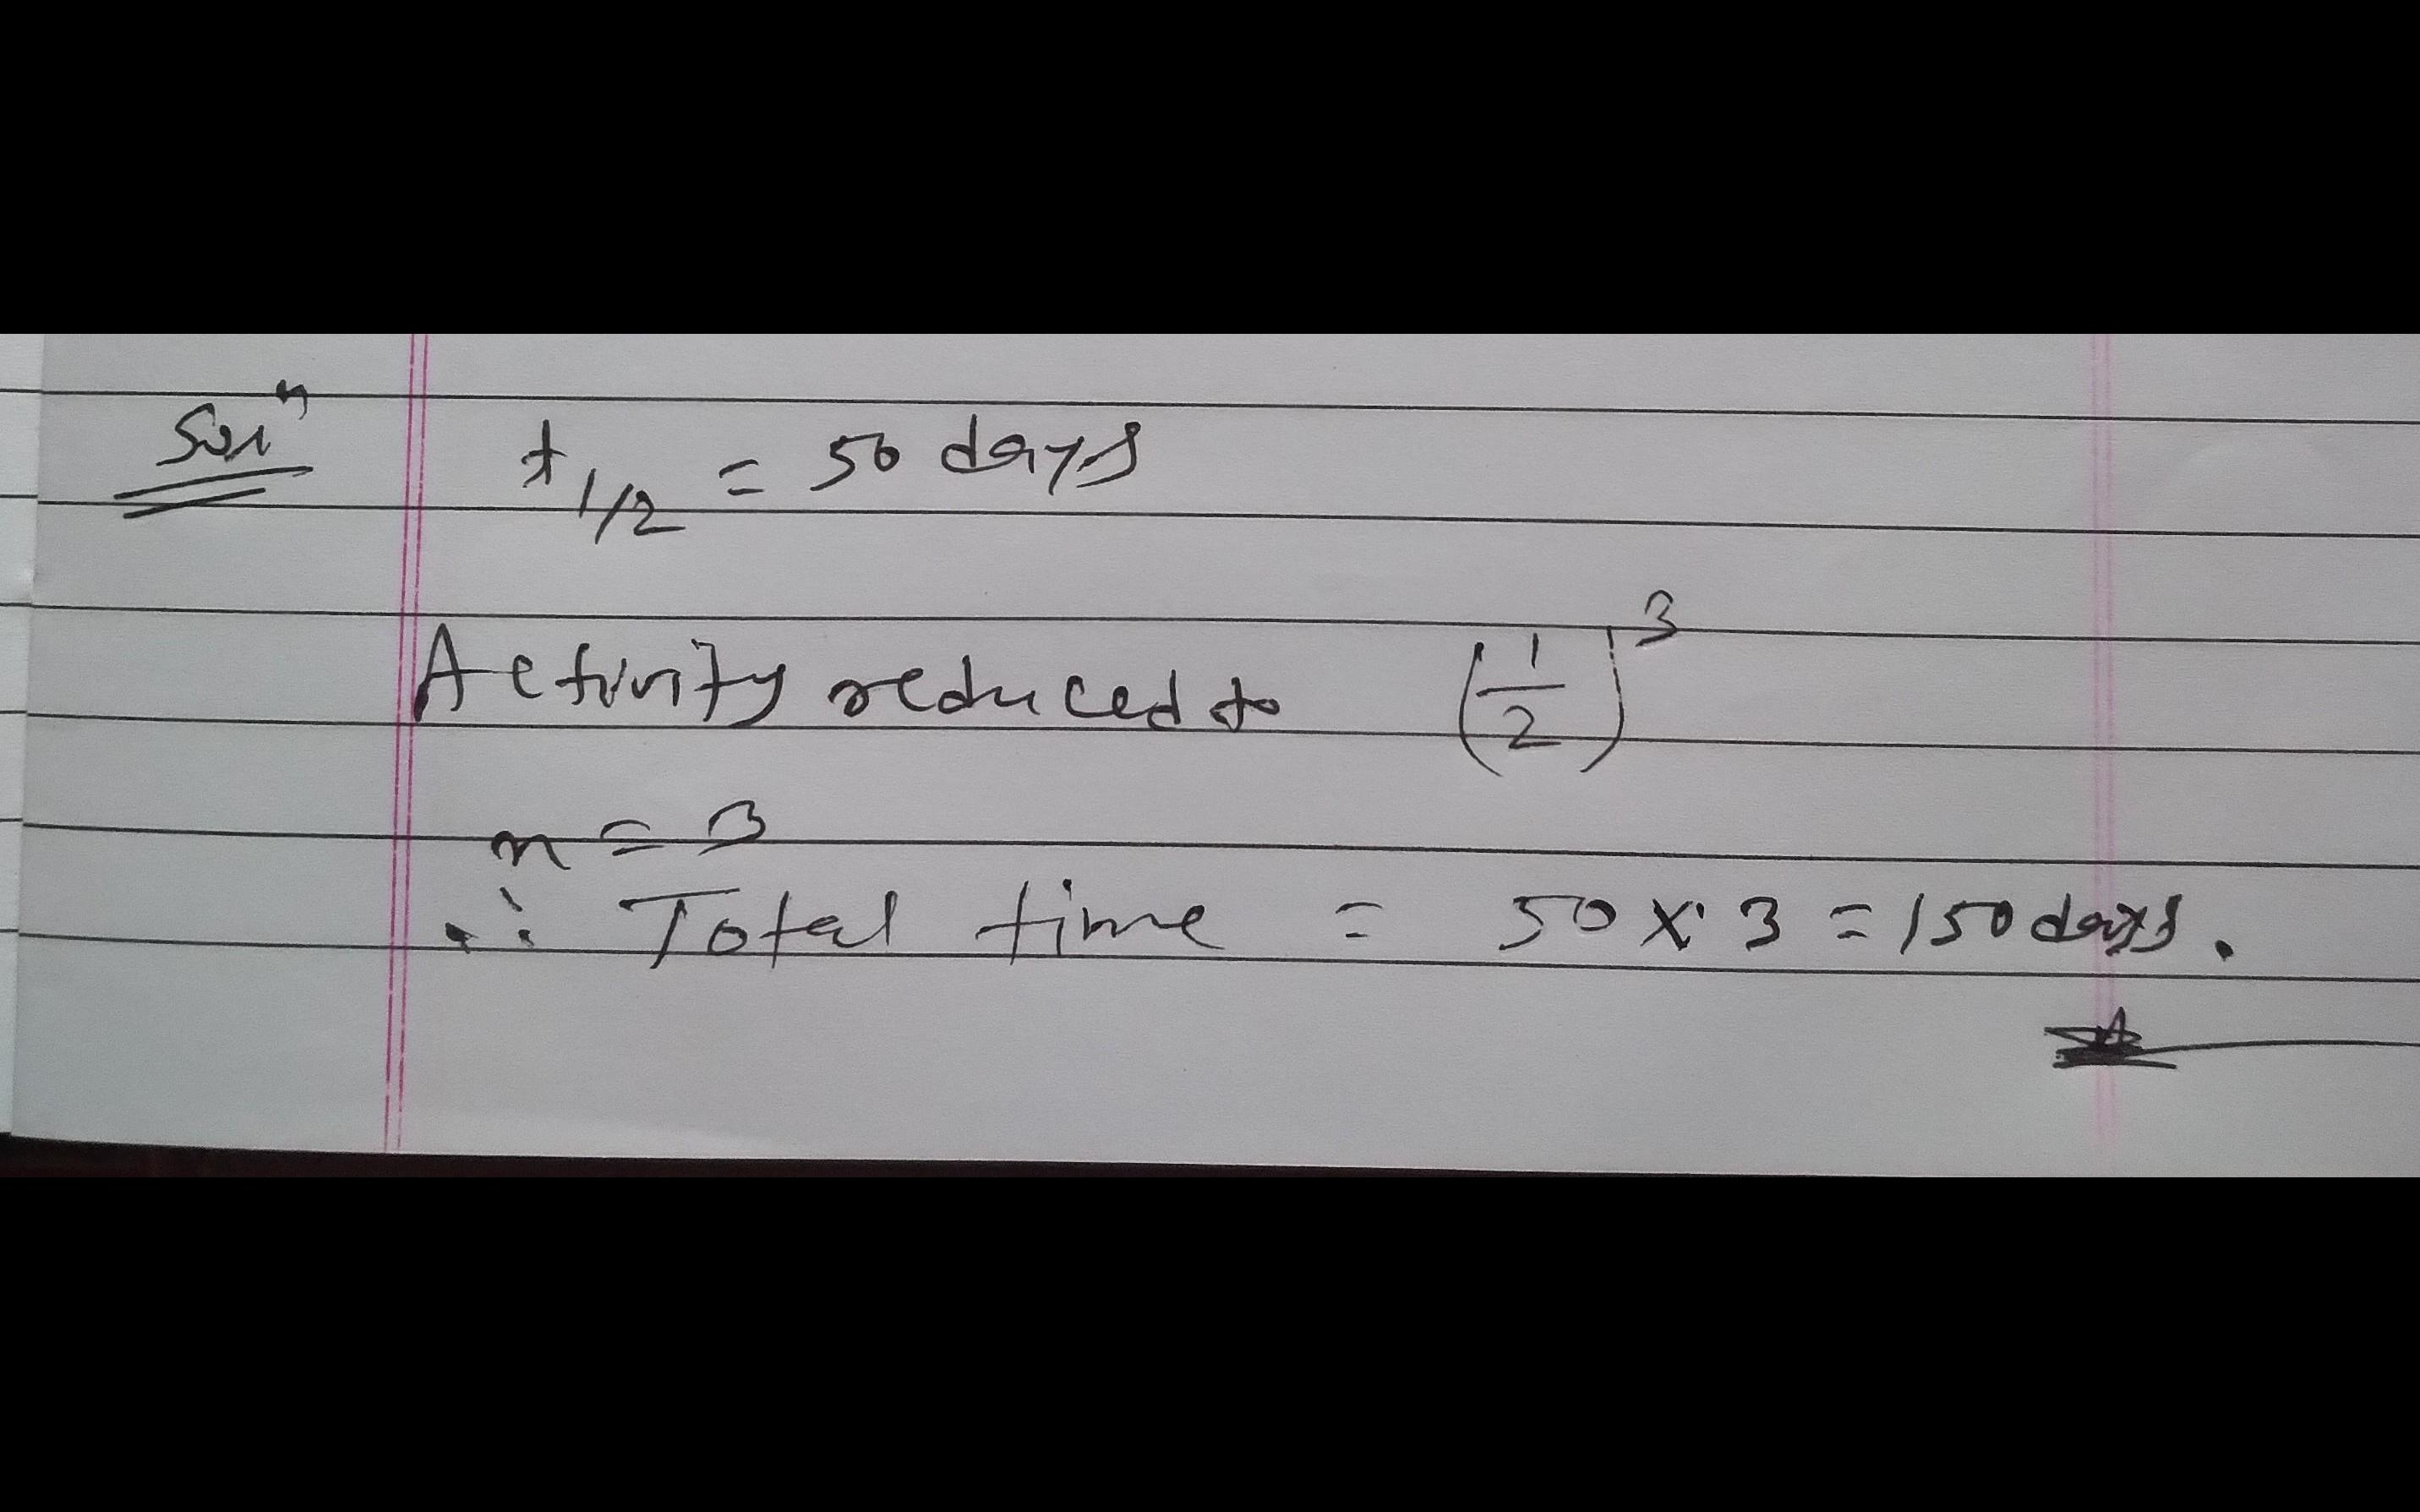 Solⁿ t1/2 = 50 days
Activity reduced to (1/2)³
n = 3
∴ Total time = 50 × 3 = 150 days.